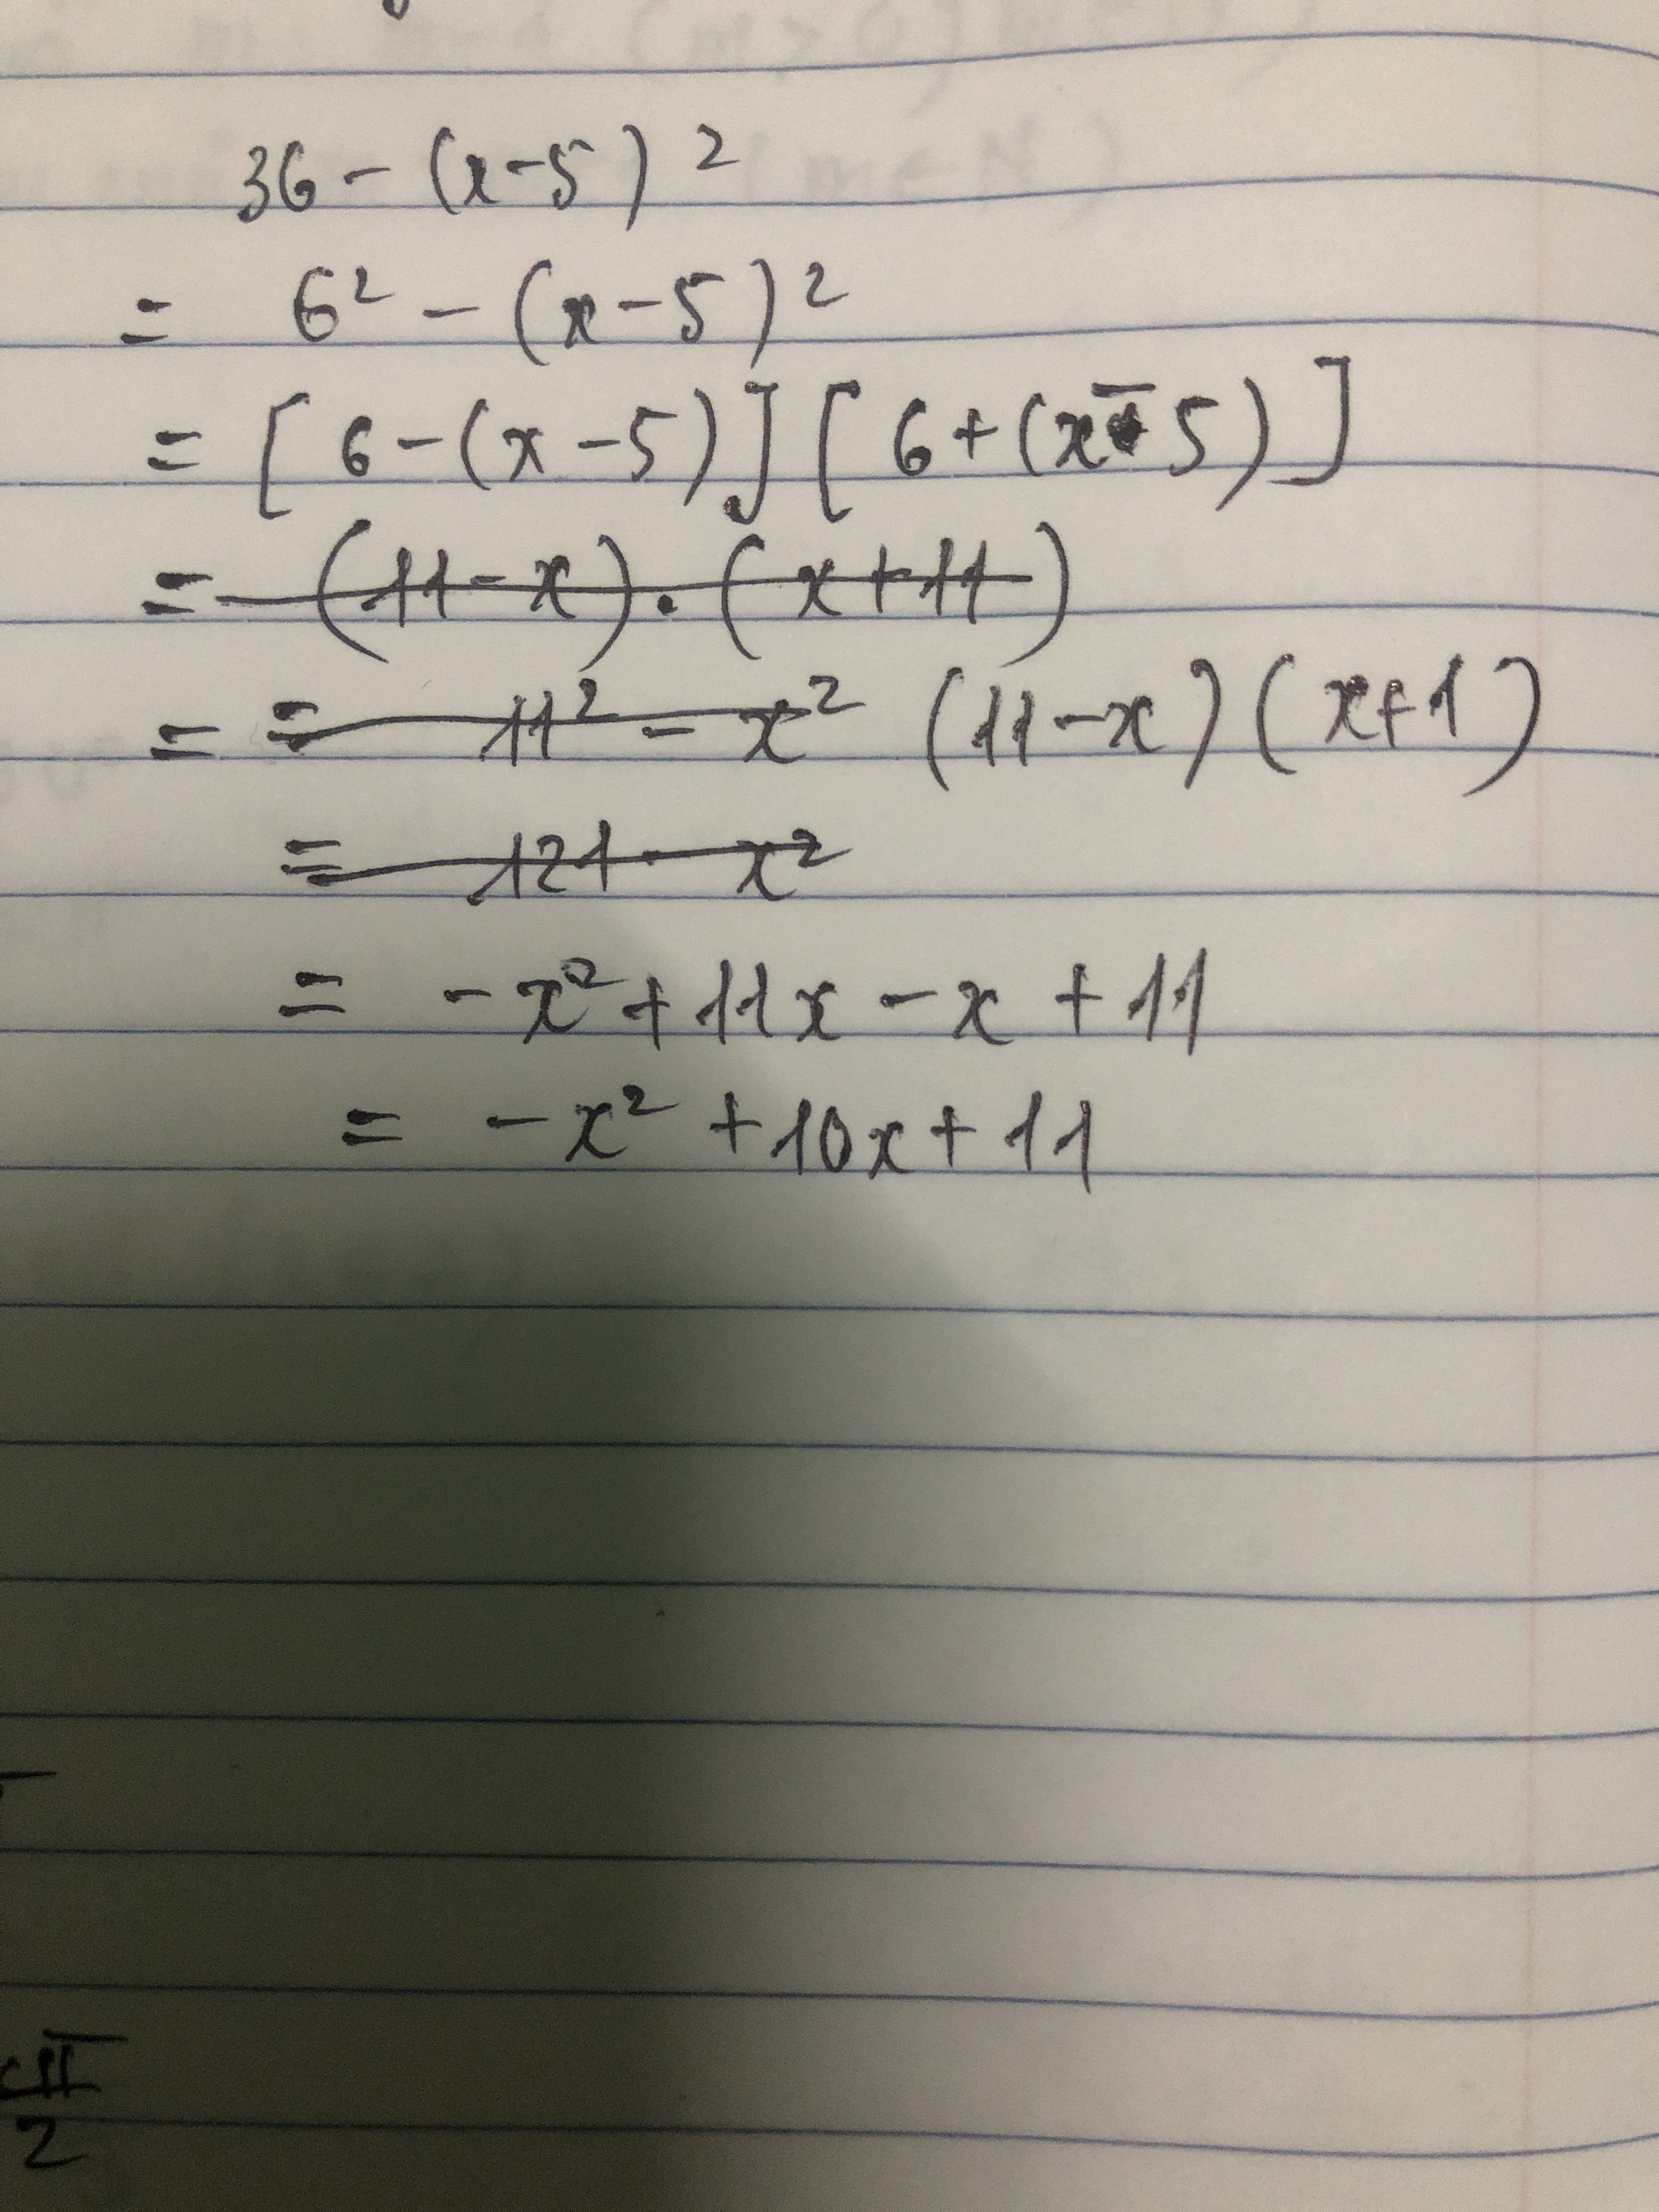 36 - (x-5)²
= 6² - (x-5)²
= [6-(x-5)][6+(x-5)]
= (11-x).(x+11)
= = 11² - x² (11-x)(x+1)
= 121 - x²
= -x² + 11x - x + 11
= -x² + 10x + 11
π
2